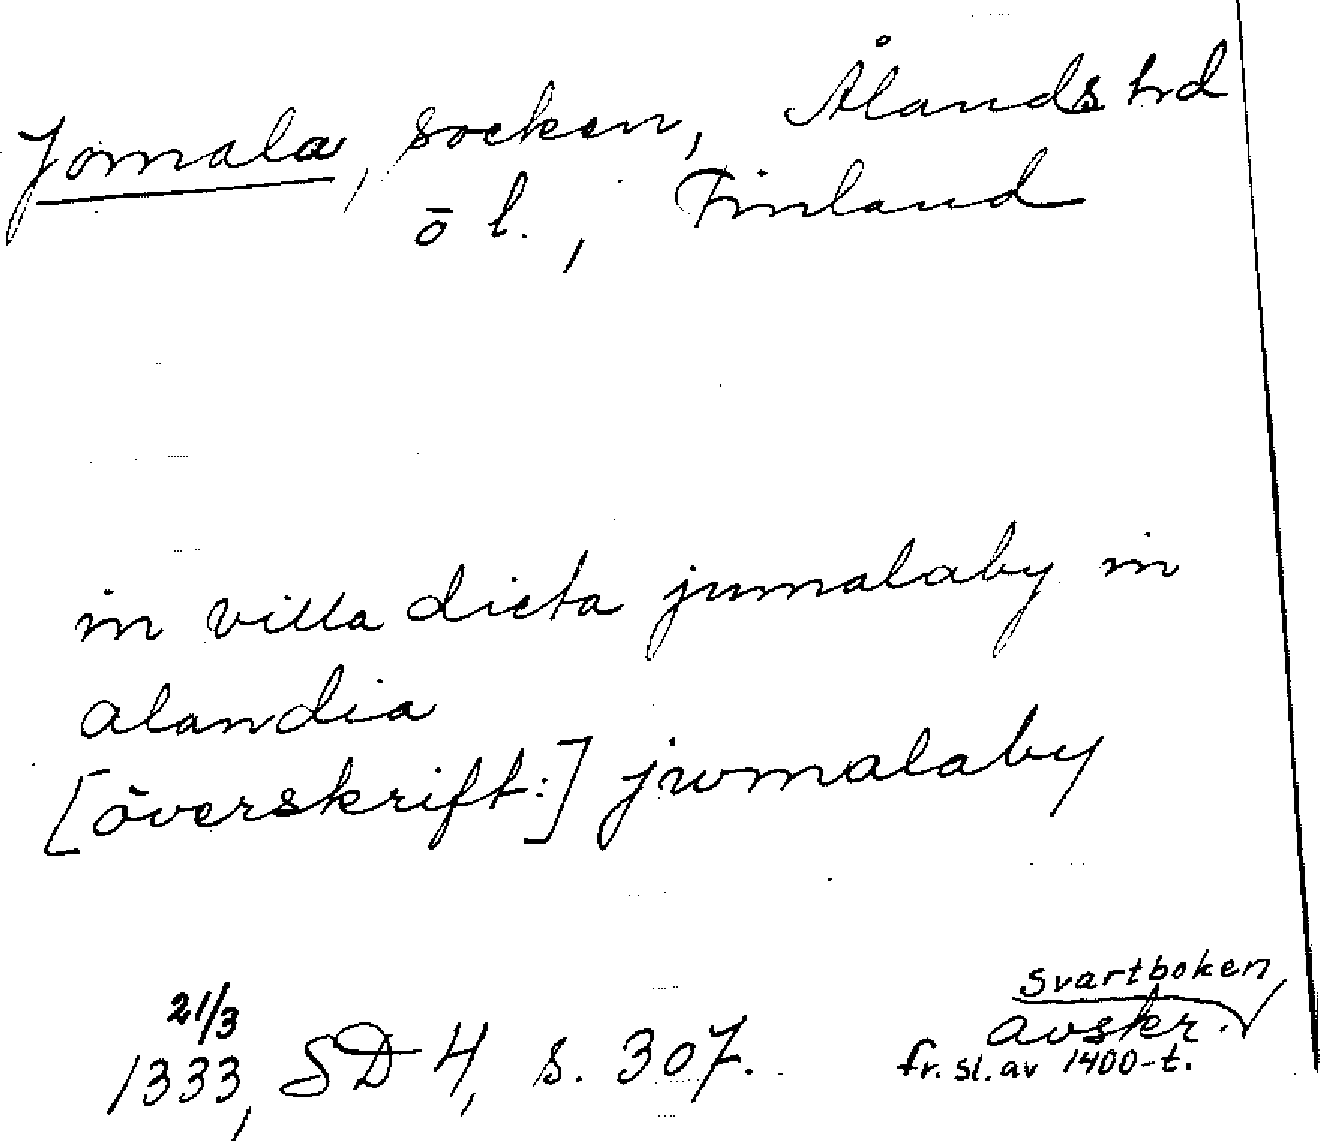 Jomala, socken, Ålands hrd
ö l., Finland
in villa dicta jumalaby in
alandia
[överskrift:] jwmalaby
21/3
1333, SD 4, s. 307.
Svartboken
avskr.
fr. sl. av 1400-t.